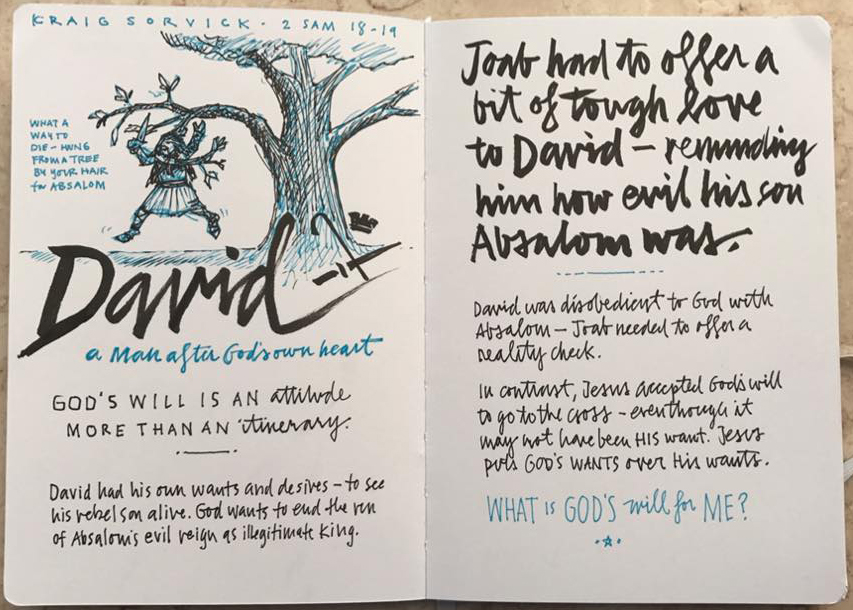 KRAIG SORVICK · 2 SAM 18-19
WHAT A
WAY TO
DIE - HUNG
FROM A TREE
BY YOUR HAIR
for ABSALOM
David -17
a Man after God's own heart
GOD'S WILL IS AN attitude
MORE THAN AN itinerary.
David had his own wants and desires - to see
his rebel son alive. God wants to end the run
of Absalom's evil reign as illegitimate King.
Joab had to offer a
bit of tough love
to David - reminding
him how evil his son
Absalom was.
David was disobedient to God with
Absalom - Joab needed to offer a
reality check.
In contrast, Jesus accepted God's will
to go to the cross - even though it
may not have been HIS want. Jesus
puts GOD'S WANTS over His wants.
WHAT is GOD'S will for ME?